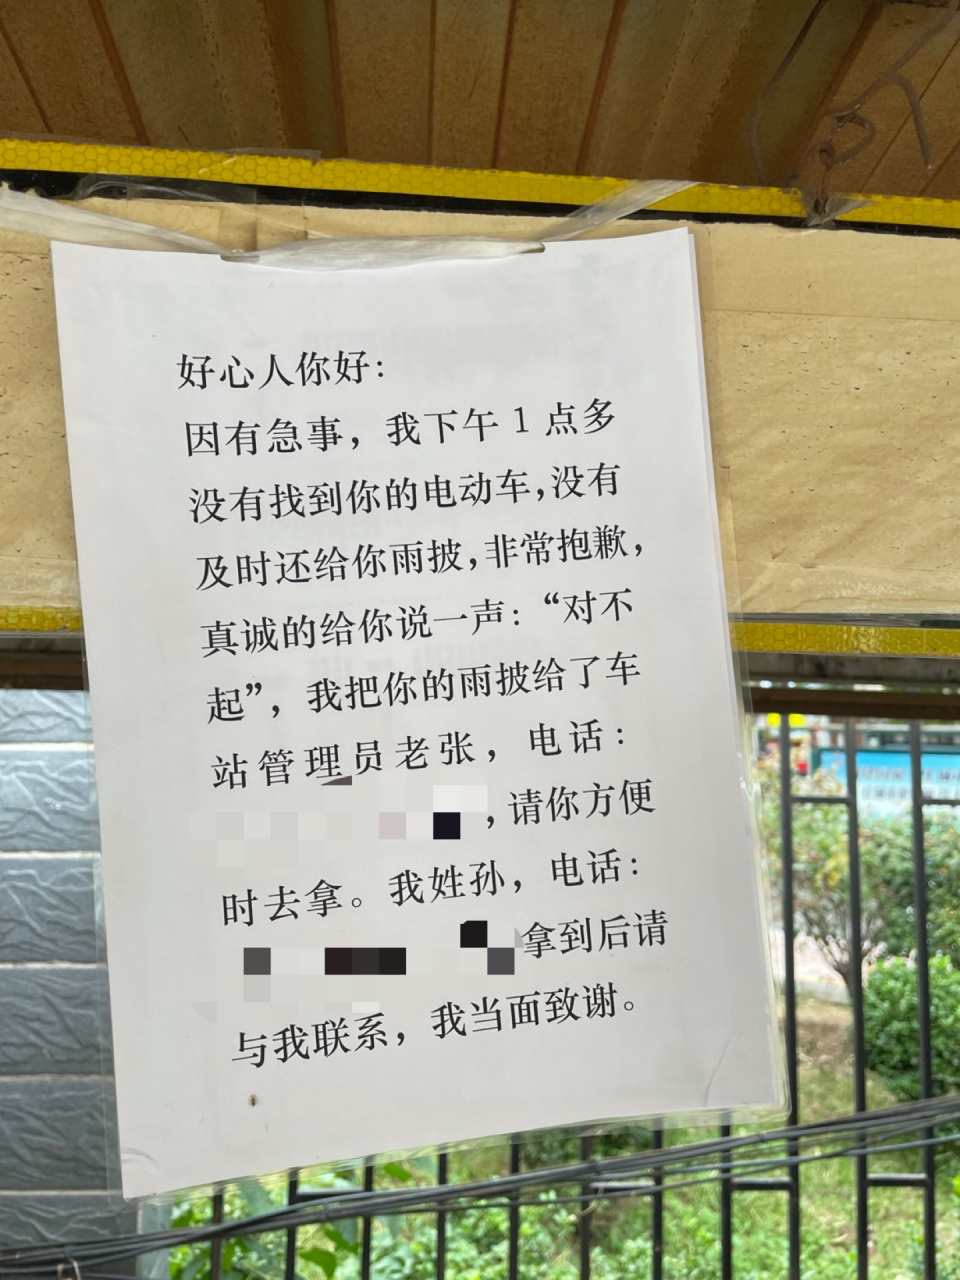 好心人你好：
因有急事，我下午 1 点多
没有找到你的电动车,没有
及时还给你雨披,非常抱歉，
真诚的给你说一声：“对不
起”，我把你的雨披给了车
站管理员老张，电话：
,请你方便
时去拿。我姓孙，电话：
拿到后请
与我联系，我当面致谢。